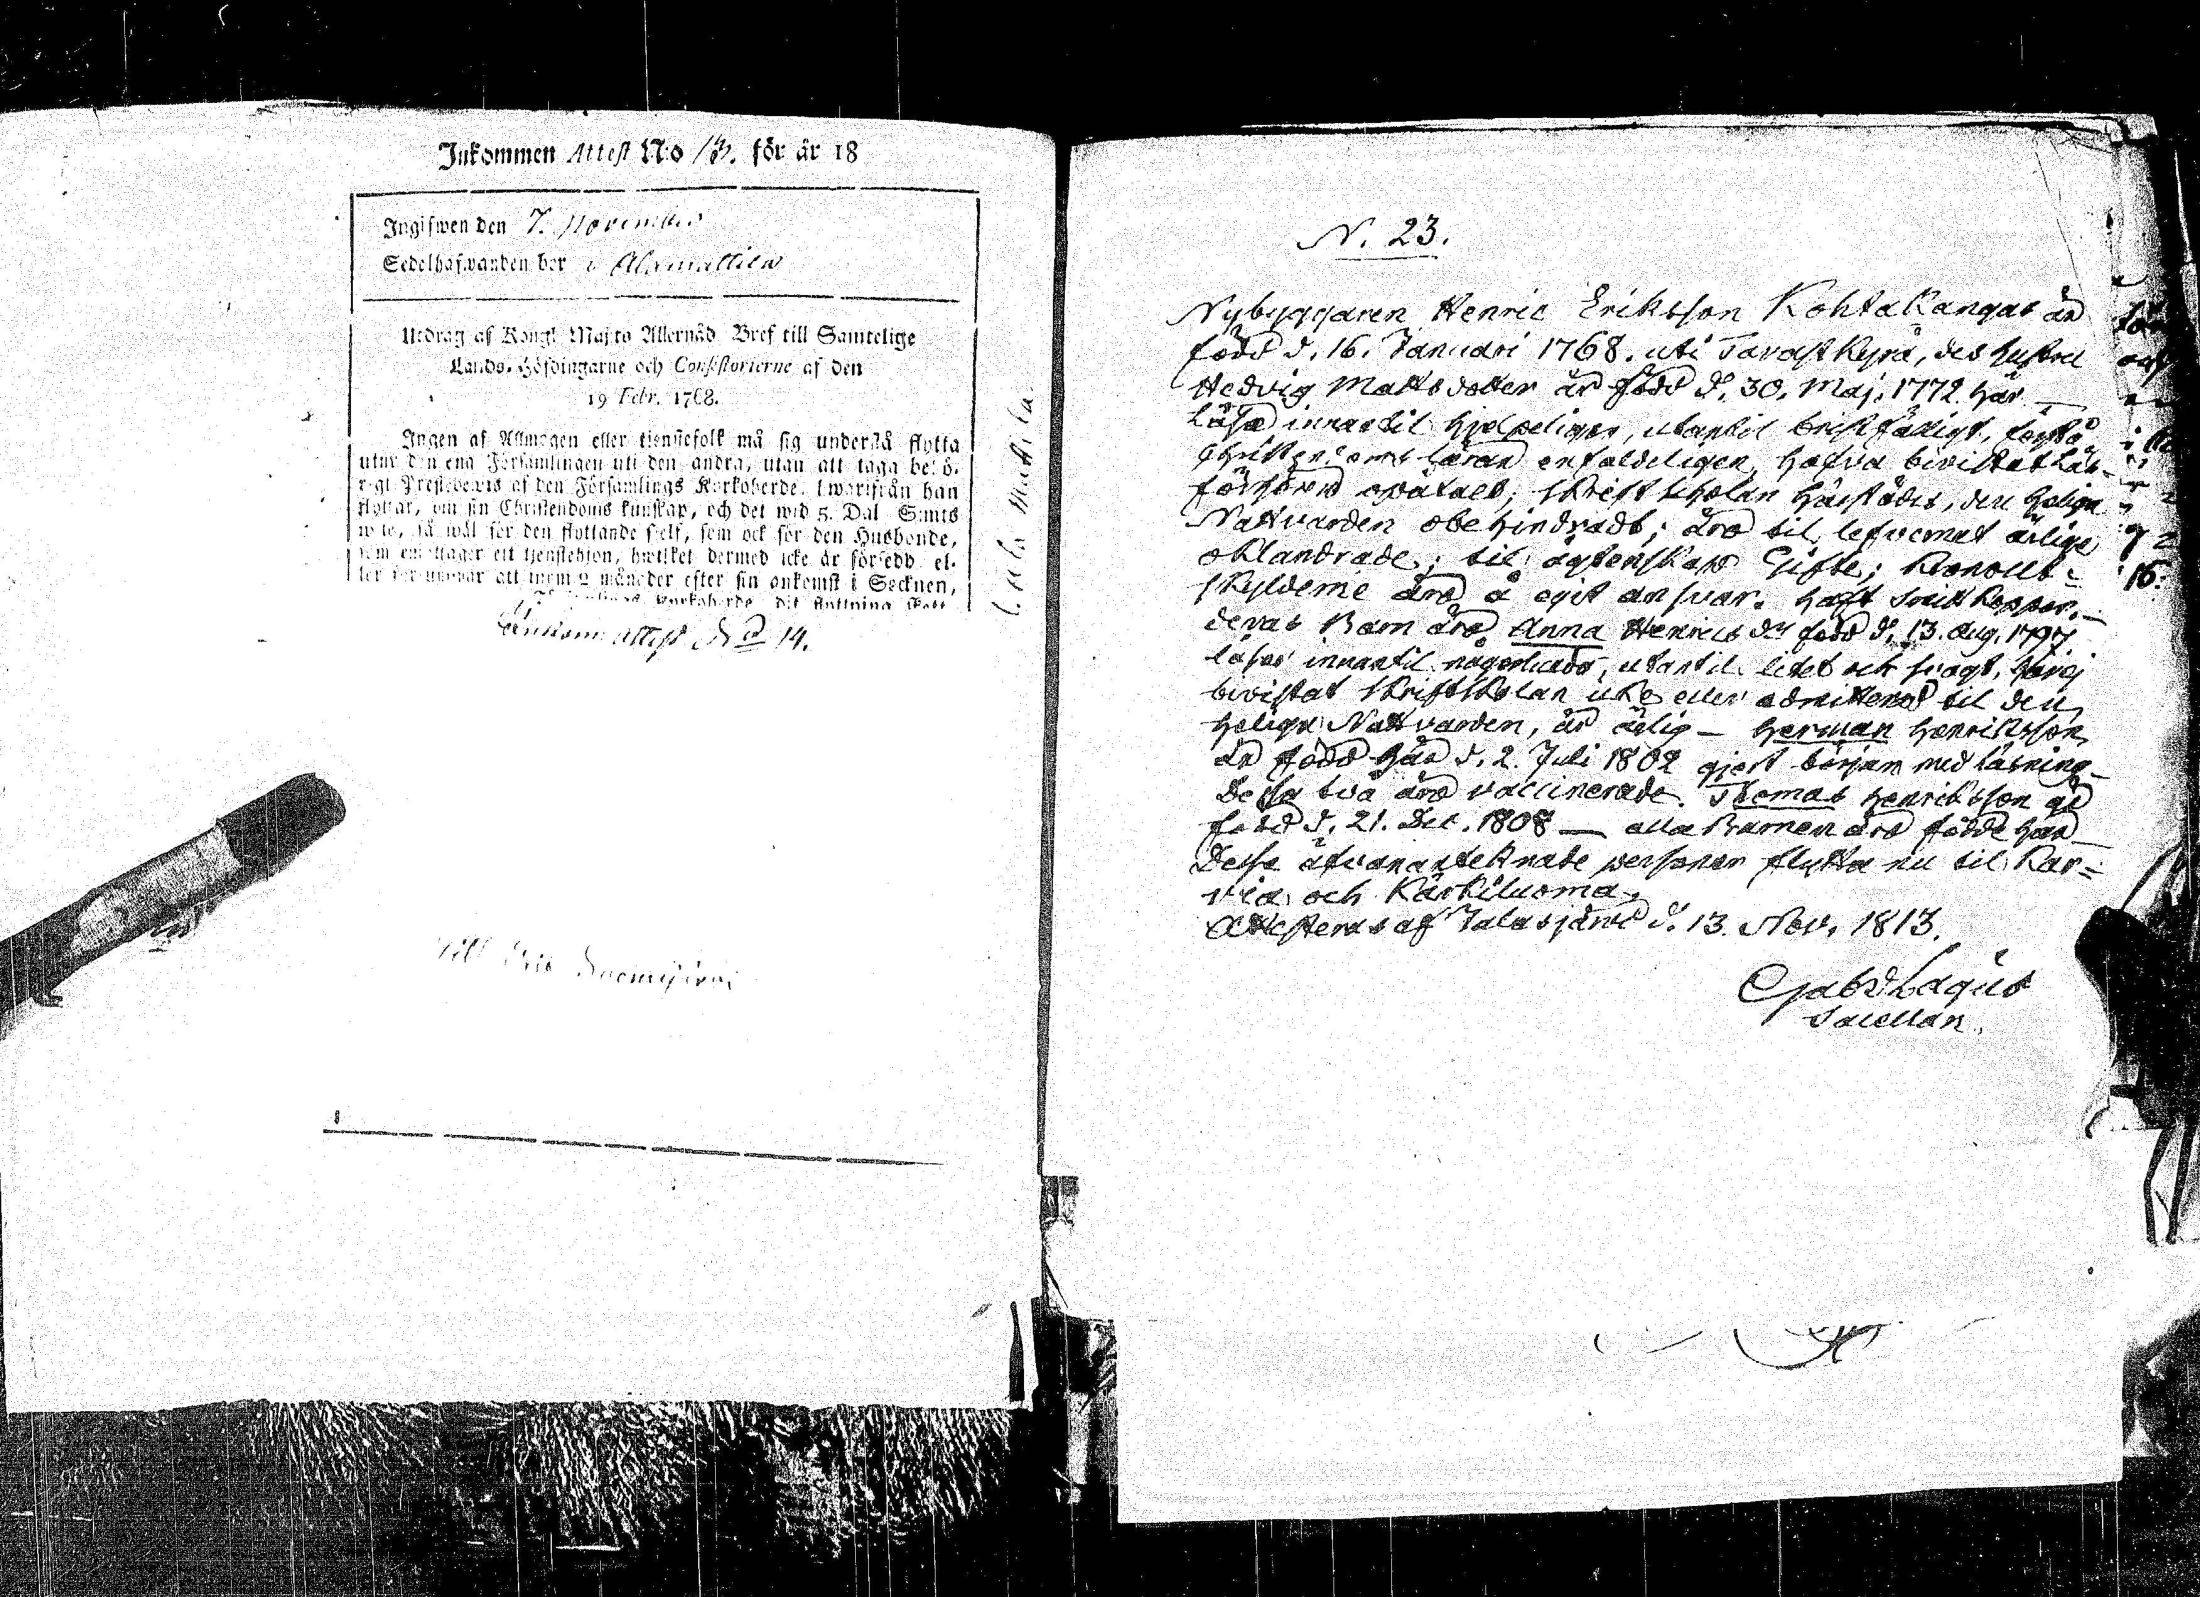 Inkommen Attest No 13. för år 18
Ingifwen den 7. November
Sedelhafwanden bor i
Utdrag af Kongl Maj:ts Allernåd Bref till Samtelige
Lands-Höfdingarne och Consistorierne af den
19 Febr. 1768.
Ingen af Allmogen eller tienstefolk må sig understå flytta
utur den ena Församlingen uti den andra, utan att taga behö-
rigt Prestebewis af den Församlings Kyrkoherde, hwarifrån han
flyttar, om sin Christendoms kunskap, och det wid 5. Dal S:mts
wite, så wäl för den flyttande sielf, som ock för den Husbonde,
som emottager ett tienstehion, hwilket dermed icke är försedd el-
ler försummar att inom 2 månader efter sin ankomst i Socknen,
Kyrkoherde dit flyttning skett
Attest N:o 14.
Till
N. 23.
Nybyggaren Henric Eriksson Kohtakangas är
född d. 16. Januari 1768. uti Tavastkyrö, des hustru
Hedvig Mattsdotter är född d. 30. Maj. 1772 här —
läsa innantil hjelpeligen, utantil bristfälligt, förstå
Christendoms läran enfaldeligen, hafva bivistat Läs-
förhören opåtalt, skriftskolan härstädes, den Heliga
Nattvarden obehindradt; äro til lefvernet ärlige
oklandrade; til ägtenskap Gifte; Kronouts-
skylderne äro å egit ansvar. haft Smittkoppor. —
deras Barn äro Anna Henrics dr född d. 13. Aug. 1797
läser innantil någorlunda, utantil litet och svagt, har ej
bivistat skriftskolan icke eller admitterad til den
Heliga Nattvarden, är ärlig — Herman Henriksson
är född här d. 2. Juli 1802 gjort början med läsning —
Dessa två äro vaccinerade. Thomas Henriksson är
född d. 21. Dec. 1808 — alla Barnen äro födde här —
Dessa ofvanantecknade personer flytta nu til Kar-
via och Kärkiluoma.
Attesteras af Jalasjärvi d. 13. Nov. 1813.
Gabr. Lagus
Sacellan.